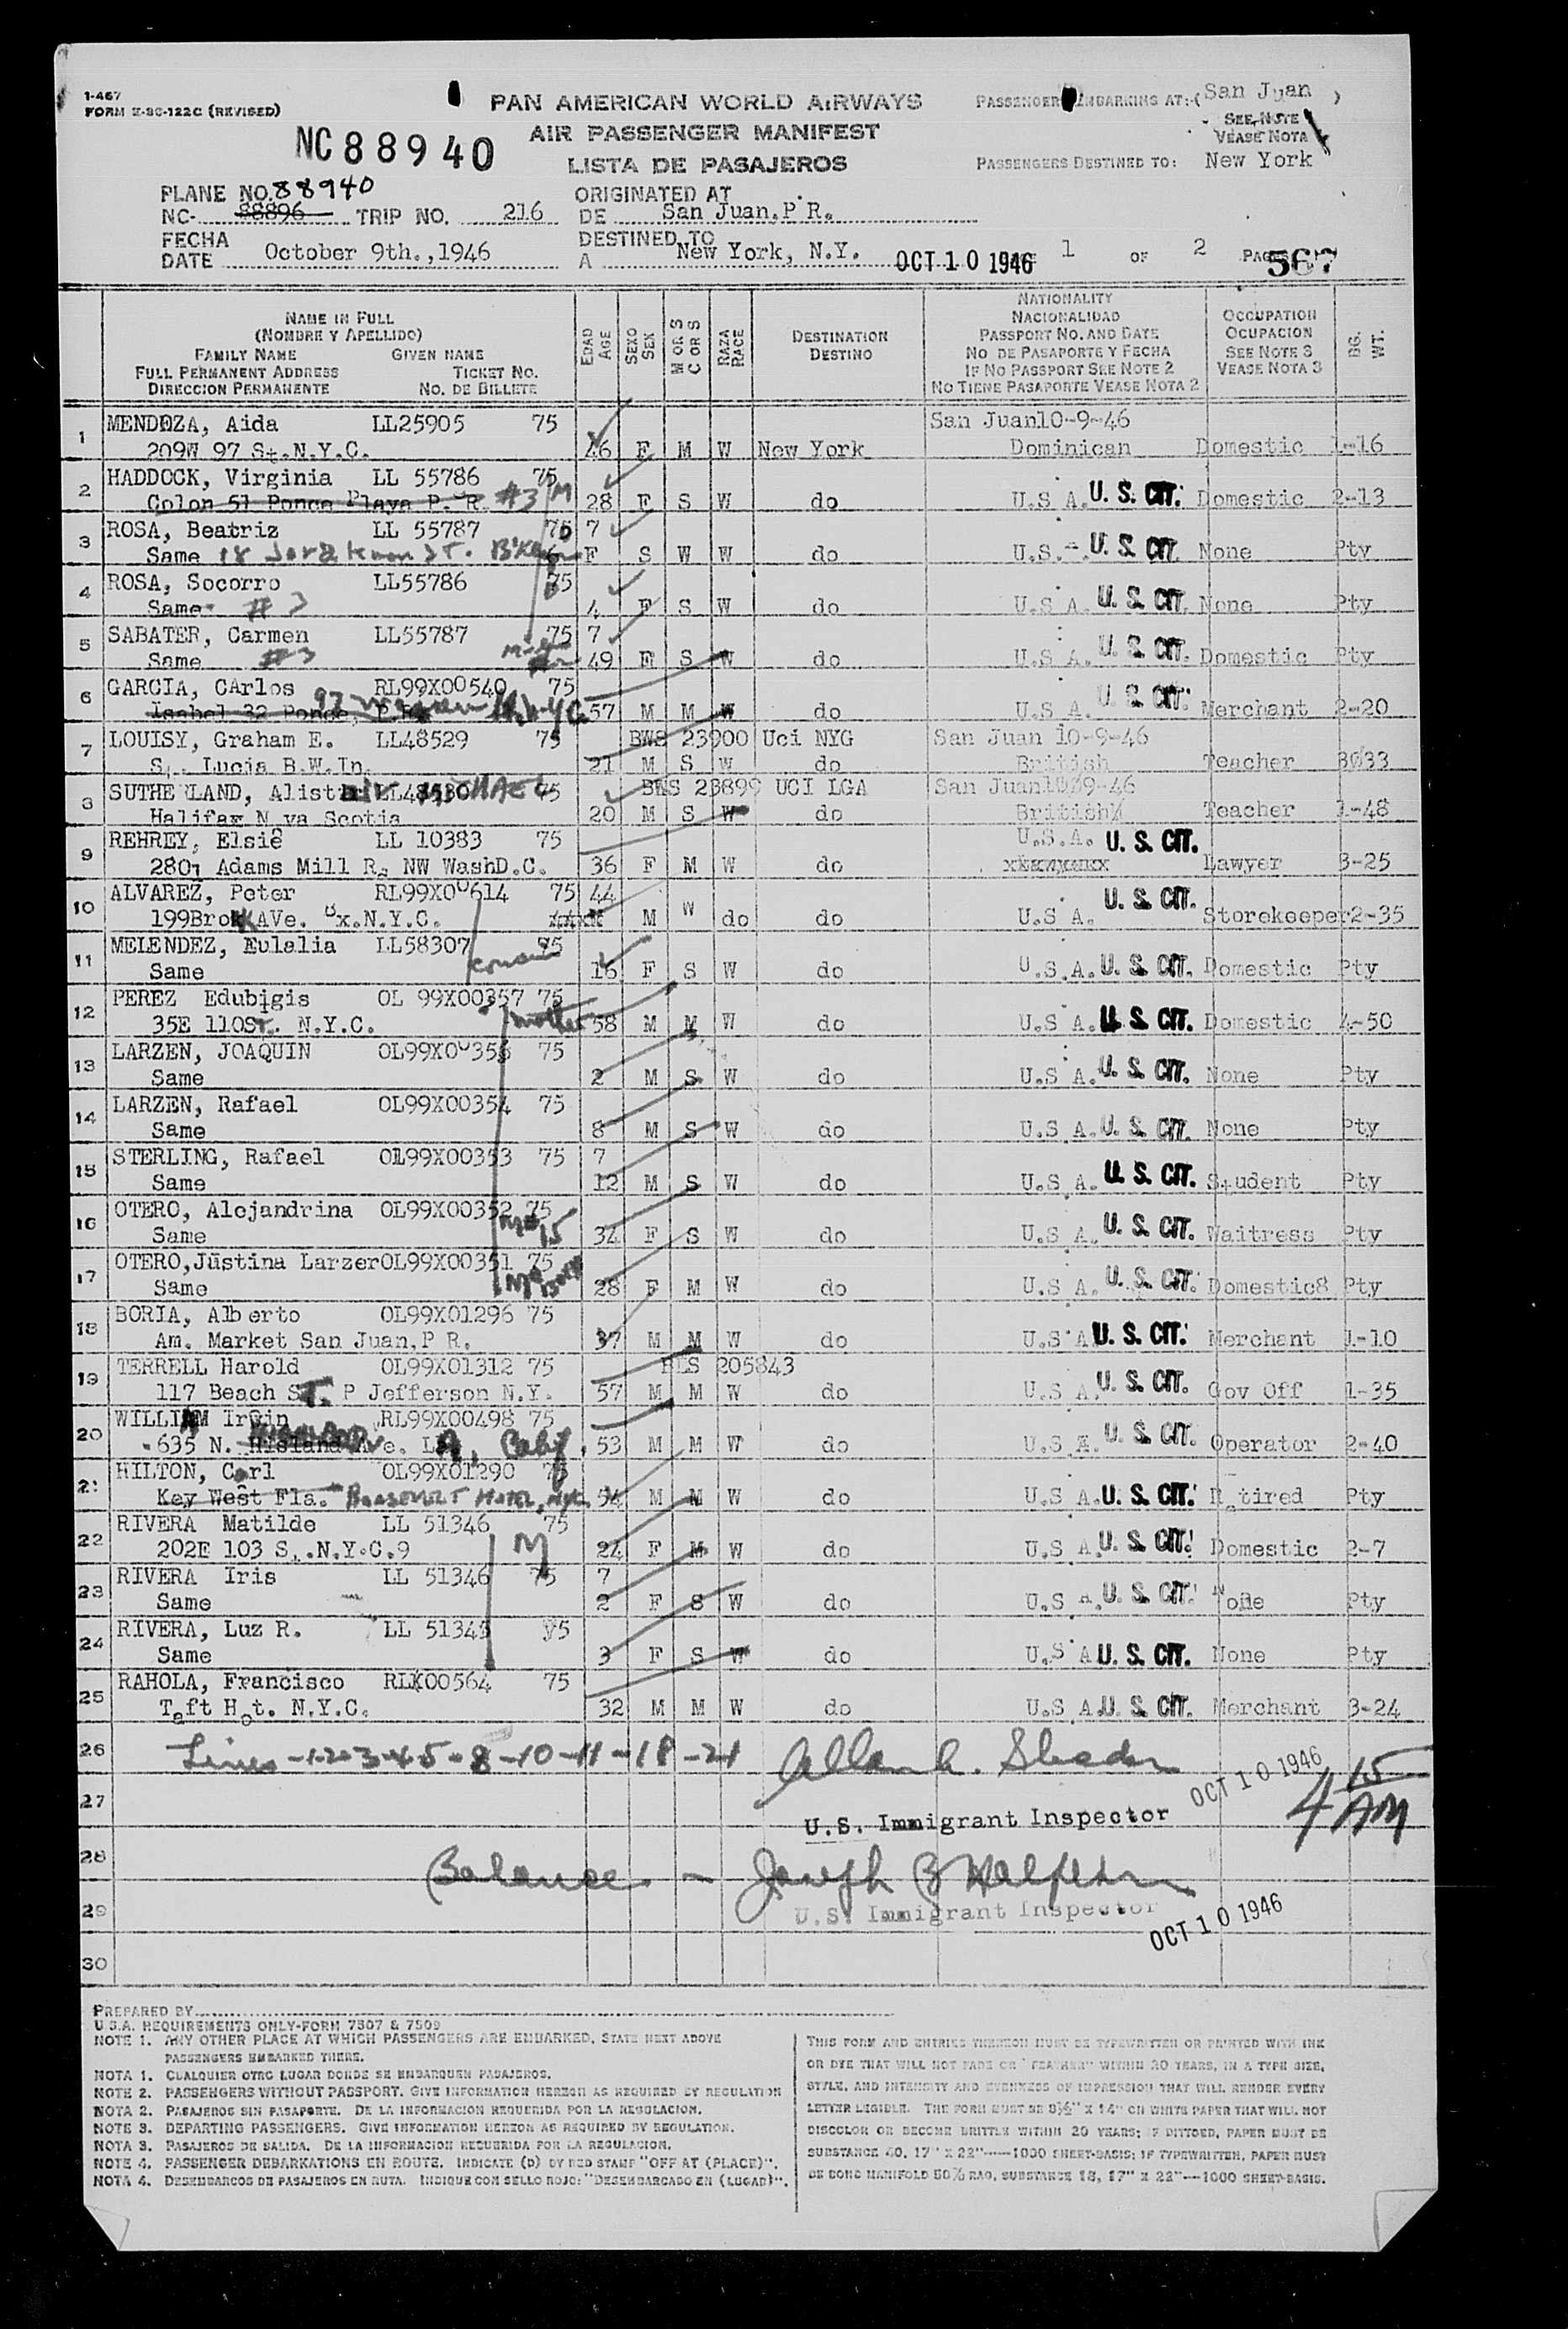 1-467
FORM E-SC-122C (REVISED)
PAN AMERICAN WORLD AIRWAYS
AIR PASSENGER MANIFEST
LISTA DE PASAJEROS
PASSENGERS EMBARKING AT:-( San Juan )
SEE NOTE 1
VEASE NOTA 1
PASSENGERS DESTINED TO: New York
NC88940
PLANE NO. 88940
NC- 88896 TRIP NO. 216
ORIGINATED AT
DE San Juan, P R.
FECHA
DATE October 9th., 1946
DESTINED TO
A New York, N.Y.
OCT 10 1946 1 OF 2 PAGES 567
NAME IN FULL
(NOMBRE Y APELLIDO)
FAMILY NAME GIVEN NAME
FULL PERMANENT ADDRESS TICKET NO.
DIRECCION PERMANENTE NO. DE BILLETE
EDAD AGE
SEXO SEX
M OR S C OR S
RAZA RACE
DESTINATION
DESTINO
NATIONALITY
NACIONALIDAD
PASSPORT NO. AND DATE
NO DE PASAPORTE Y FECHA
IF NO PASSPORT SEE NOTE 2
NO TIENE PASAPORTE VEASE NOTA 2
OCCUPATION
OCUPACION
SEE NOTE 3
VEASE NOTA 3
BG. WT.
1 MENDOZA, Aida LL25905 75 San Juan10-9-46
209W 97 St.N.Y.C. 46 F M W New York Dominican Domestic 1-16
2 HADDOCK, Virginia LL 55786 75
Colon 51 Ponce Playa P. R. #3 M 28 F S W do U.S A. U. S. CIT. Domestic 2-13
3 ROSA, Beatriz LL 55787 75 7
Same 18 F S W W do U.S. U. S. CIT. None Pty
4 ROSA, Socorro LL55786 75
Same #3 4 F S W do U.S A. U. S. CIT. None Pty
5 SABATER, Carmen LL55787 75 7
Same #3 49 F S W do U.S A. U. S. CIT. Domestic Pty
6 GARCIA, CArlos RL99X00540 75
Isabel 32 Ponce, P.R. 57 M M W do U.S A. U. S. CIT. Merchant 2-20
7 LOUISY, Graham E. LL48529 75 BWS 23900 Uci NYG San Juan 10-9-46
St. Lucia B.W.In. 21 M S W do British Teacher 3033
8 SUTHERLAND, 75 BWS 23899 UCI LGA San Juan1009-46
Halifax N va Scotia 20 M S W do British Teacher 1-48
9 REHREY, Elsie LL 10383 75 U.S.A. U. S. CIT.
2801 Adams Mill R. NW WashD.C. 36 F M W do Lawyer 3-25
10 ALVAREZ, Peter RL99X00614 75 44
199Brook AVe. Bx.N.Y.C. M W do do U.S A. U. S. CIT. Storekeeper2-35
11 MELENDEZ, Eulalia LL58307 75
Same cousin 16 F S W do U.S.A. U. S. CIT. Domestic Pty
12 PEREZ Edubigis OL 99X00357 75
35E 110St. N.Y.C. mother 58 M M W do U.S A. U. S. CIT. Domestic 4-50
13 LARZEN, JOAQUIN OL99X00355 75
Same 2 M S W do U.S A. U. S. CIT. None Pty
14 LARZEN, Rafael OL99X00354 75
Same 8 M S W do U.S A. U. S. CIT. None Pty
15 STERLING, Rafael OL99X00353 75 7
Same 12 M S W do U.S A. U. S. CIT. Student Pty
16 OTERO, Alejandrina OL99X00352 75
Same 15 34 F S W do U.S A. U. S. CIT. Waitress Pty
17 OTERO,Justina LarzerOL99X00351 75
Same 28 F M W do U.S A. U. S. CIT. Domestic8 Pty
18 BORIA, Alberto OL99X01296 75
Am. Market San Juan,P R. 37 M M W do U.S A U. S. CIT. Merchant 1-10
19 TERRELL Harold OL99X01312 75 205843
117 Beach ST. P Jefferson N.Y. 57 M M W do U.S A. U. S. CIT. Gov Off 1-35
20 WILLIAM Irwin RL99X00498 75
635 N. Ave. LA, Calif. 53 M M W do U.S A. U. S. CIT. Operator 2-40
21 HILTON, Carl OL99X01290 75
Key West Fla. ROOSEVELT HOTEL, NYC 54 M M W do U.S A. U. S. CIT. Retired Pty
22 RIVERA Matilde LL 51346 75
202E 103 St.N.Y.C.9 M 24 F M W do U.S A. U. S. CIT. Domestic 2-7
23 RIVERA Iris LL 51346 75 7
Same 2 F S W do U.S A. U. S. CIT. None Pty
24 RIVERA, Luz R. LL 51345 75
Same 3 F S W do U.S A U. S. CIT. None Pty
25 RAHOLA, Francisco RLX00564 75
Taft Hot. N.Y.C. 32 M M W do U.S A. U. S. CIT. Merchant 3-24
26 Lines -1-2-3-4-5-8-10-11-18-21
OCT 10 1946
4 15 AM
27 U.S. Immigrant Inspector
28 Balance - Joseph B Halpern
29 U.S. Immigrant Inspector
OCT 10 1946
30
PREPARED BY
U.S.A. REQUIREMENTS ONLY-FORM 7507 & 7509
NOTE 1. ANY OTHER PLACE AT WHICH PASSENGERS ARE EMBARKED, STATE NEXT ABOVE
PASSENGERS EMBARKED THERE.
NOTA 1. CUALQUIER OTRO LUGAR DONDE SE EMBARQUEN PASAJEROS.
NOTE 2. PASSENGERS WITHOUT PASSPORT. GIVE INFORMATION HEREON AS REQUIRED BY REGULATION
NOTA 2. PASAJEROS SIN PASAPORTE. DE LA INFORMACION REQUERIDA POR LA REGULACION.
NOTE 3. DEPARTING PASSENGERS. GIVE INFORMATION HEREON AS REQUIRED BY REGULATION.
NOTA 3. PASAJEROS DE SALIDA. DE LA INFORMACION REQUERIDA POR LA REGULACION.
NOTE 4. PASSENGER DEBARKATIONS EN ROUTE. INDICATE (D) BY RED STAMP "OFF AT (PLACE)".
NOTA 4. DESEMBARCOS DE PASAJEROS EN RUTA. INDIQUE CON SELLO ROJO: "DESEMBARCADO EN (LUGAR)".
THIS FORM AND ENTRIES THEREON MUST BE TYPEWRITTEN OR PRINTED WITH INK
OR DYE THAT WILL NOT FADE OR "FEATHER" WITHIN 20 YEARS, IN A TYPE SIZE,
STYLE, AND INTENSITY AND EVENNESS OF IMPRESSION THAT WILL RENDER EVERY
LETTER LEGIBLE. THE FORM MUST BE 8½" X 14" ON WHITE PAPER THAT WILL NOT
DISCOLOR OR BECOME BRITTLE WITHIN 20 YEARS; IF DITTOED, PAPER MUST BE
SUBSTANCE 40, 17" X 22"—1000 SHEET-BASIS; IF TYPEWRITTEN, PAPER MUST
BE BOND MANIFOLD 50% RAG, SUBSTANCE 18, 17" X 22"—1000 SHEET-BASIS.